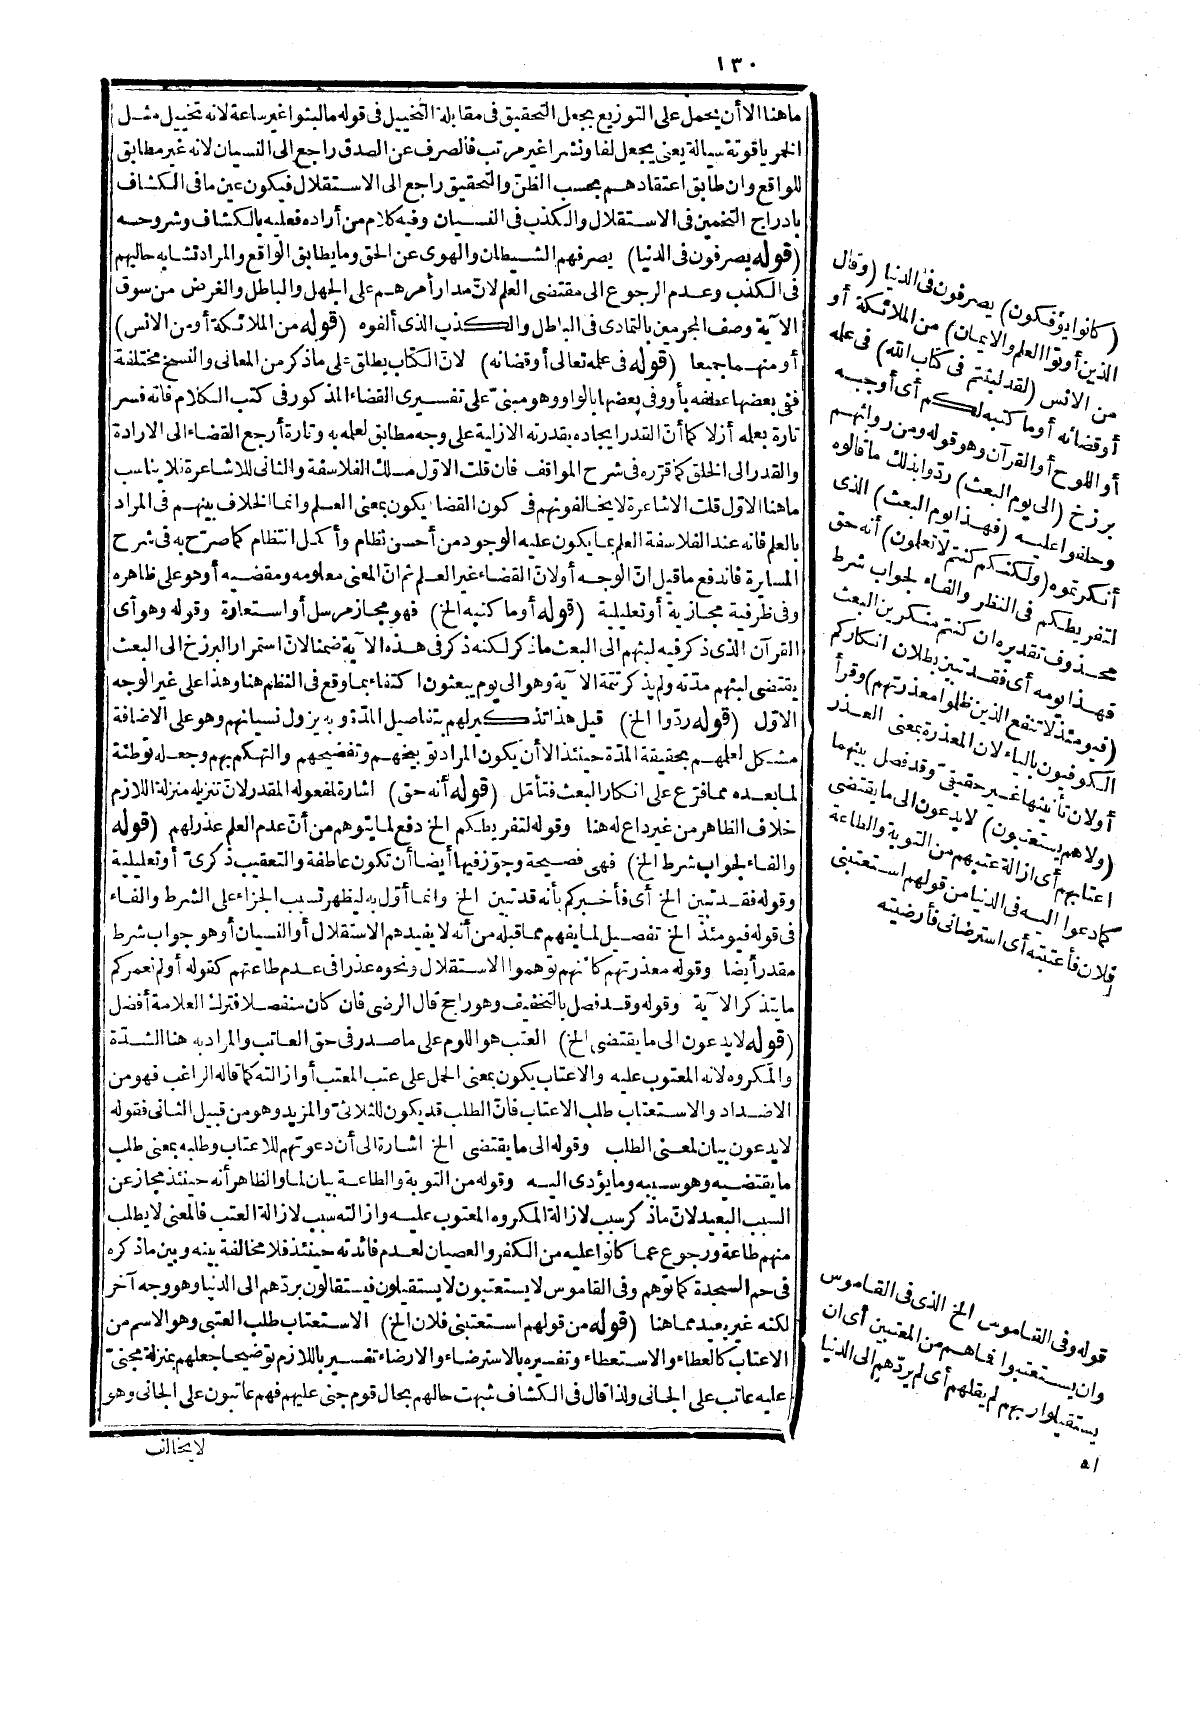 ١٣٠
ما هنا الا أن يحمل على التوزيع بجعل التحقيق فى مقابلة التخييل فى قوله ما لبثوا غير ساعة لانه تخييل مثل
الخمر ياقوتة سيالة يعنى يجعل لفا ونشرا غير مرتب فالصرف عن الصدق راجع الى النسيان لانه غير مطابق
للواقع وان طابق اعتقادهم بحسب الظنّ والتحقيق راجع الى الاستقلال فيكون عين ما فى الكشاف
بادراج التخمين فى الاستقلال والكذب فى النسيان وفيه كلام من أراده فعليه بالكشاف وشروحه
(قوله يصرفون فى الدنيا) يصرفهم الشيطان والهوى عن الحق وما يطابق الواقع والمراد تشابه حاليهم
فى الكذب وعدم الرجوع الى مقتضى العلم لانّ مدار أمرهم على الجهل والباطل والغرض من سوق
الآية وصف المجرمين بالتمادى فى الباطل والكذب الذى ألفوه (قوله من الملائكة أو من الانس)
أو منهما جميعا (قوله فى علمه تعالى أو قضائه) لانّ الكتاب يطلق على ما ذكر من المعانى والنسخ مختلفة
ففى بعضها عطفه بأو وفى بعضها بالواو وهو مبنىّ على تفسيرى القضاء المذكور فى كتب الكلام فانه فسر
تارة بعلمه أزلا كما أنّ القدر ايجاده بقدرته الازلية على وجه مطابق لعلمه به وتارة أرجع القضاء الى الارادة
والقدر الى الخلق كما قرّره فى شرح المواقف فان قلت الاوّل مسلك الفلاسفة والثانى للاشاعرة فلا يناسب
ما هنا الاول قلت الاشاعرة لا يخالفونهم فى كون القضاء يكون بمعنى العلم وانما الخلاف بينهم فى المراد
بالعلم فانه عند الفلاسفة العلم بما يكون عليه الوجود من أحسن نظام وأكمل انتظام كما صرّح به فى شرح
المسايرة فاندفع ما قيل انّ الوجه أو لانّ القضاء غير العلم ثم انّ المعنى معلومه ومقضيه أو هو على ظاهره
وفى ظرفية مجازية أو تعليلية (قوله أو ما كتبه الخ) فهو مجاز مرسل أو استعارة وقوله وهو أى
القرآن الذى ذكر فيه لبثهم الى البعث ما ذكر لكنه ذكر فى هذه الآية ضمنا لانّ استمرار البرزخ الى البعث
يقتضى لبثهم مدّته ولم يذكر تتمة الآية وهو الى يوم يبعثون اكتفاء بما وقع فى النظم هنا وهذا على غير الوجه
الاوّل (قوله ردّوا الخ) قيل هذا تذكير لهم بتفاصيل المدّة وبه يزول نسيانهم وهو على الاضافة
مشكل لعلمهم بحقيقة المدّة حينئذ الا أن يكون المراد توبيخهم وتفضيحهم والتهكم بهم وجعله توطئة
لما بعده مما فرّع على انكار البعث فتأمّل (قوله أنه حق) اشارة لمفعوله المقدر لانّ تنزيله منزلة اللازم
خلاف الظاهر من غير داع له هنا وقوله لتفريطكم الخ دفع لما يتوهم من أنّ عدم العلم عذر لهم (قوله
والفاء لجواب شرط الخ) فهى فصيحة وجوّز فيها أيضا أن تكون عاطفة والتعقيب ذكرىّ أو تعليلية
وقوله فقد تبين الخ أى فأخبركم بأنه قد تبين الخ وانما أوّل به ليظهر تسبب الجزاء على الشرط والفاء
فى قوله فيومئذ الخ تفصيل لما يفهم مما قبله من أنه لا يفيدهم الاستقلال أو النسيان أو هو جواب شرط
مقدر أيضا وقوله معذرتهم كأنهم توهموا الاستقلال ونحوه عذرا فى عدم طاعتهم كقوله أولم نعمركم
ما يتذكر الآية وقوله وقد فصل بالتخفيف وهو راجح قال الرضى فان كان منفصلا فترك العلامة أفضل
(قوله لا يدعون الى ما يقتضى الخ) العتب هو اللوم على ما صدر فى حق العاتب والمراد به هنا الشدّة
والمكروه لانه المعتوب عليه والاعتاب يكون بمعنى الحمل على عتب المعتب أو ازالته كما قاله الراغب فهو من
الاضداد والاستعتاب طلب الاعتاب فانّ الطلب قد يكون للثلاثىّ والمزيد وهو من قبيل الثانى فقوله
لا يدعون بيان لمعنى الطلب وقوله الى ما يقتضى الخ اشارة الى أن دعوتهم للاعتاب وطلبه بمعنى طلب
ما يقتضيه وهو سببه وما يؤدى اليه وقوله من التوبة والطاعة بيان لما والظاهر أنه حينئذ مجاز عن
السبب البعيد لانّ ما ذكر سبب لازالة المكروه المعتوب عليه وازالته سبب لازالة العتب فالمعنى لا يطلب
منهم طاعة ورجوع عما كانوا عليه من الكفر والعصيان لعدم فائدته حينئذ فلا مخالفة بينه وبين ما ذكره
فى حم السجدة كما توهم وفى القاموس لا يستعتبون لا يستقيلون فيستقالون بردّهم الى الدنيا وهو وجه آخر
لكنه غير بعيد مما هنا (قوله من قولهم استعتبنى فلان الخ) الاستعتاب طلب العتبى وهو الاسم من
الاعتاب كالعطاء والاستعطاء وتفسيره بالاسترضاء والارضاء تفسير باللازم توضيحا جعلهم بمنزلة مجنىّ
عليه عاتب على الجانى ولذا قال فى الكشاف شبهت حالهم بحال قوم جنى عليهم فهم عاتبون على الجانى وهو
لا يخالف
(كانوا يؤفكون) يصرفون فى الدنيا (وقال
الذين أوتوا العلم والايمان) من الملائكة أو
من الانس (لقد لبثتم فى كتاب الله) فى علمه
أو قضائه أو ما كتبه لكم أى أوجبه
أو اللوح أو القرآن وهو قوله ومن ورائهم
برزخ (الى يوم البعث) ردّوا بذلك ما قالوه
وحلفوا عليه (فهذا يوم البعث) الذى
أنكرتموه (ولكنكم كنتم لا تعلمون) أنه حق
لتفريطكم فى النظر والفاء لجواب شرط
محذوف تقديره ان كنتم منكرين البعث
فهذا يومه أى فقد تبين بطلان انكاركم
(فيومئذ لا تنفع الذين ظلموا معذرتهم) وقرأ
الكوفيون بالياء لان المعذرة بمعنى العذر
أو لان تأنيثها غير حقيقىّ وقد فصل بينهما
(ولا هم يستعتبون) لا يدعون الى ما يقتضى
اعتابهم أى ازالة عتبهم من التوبة والطاعة
كما دعوا اليه فى الدنيا من قولهم استعتبنى
فلان فأعتبته أى استرضانى فأرضيته
قوله وفى القاموس الخ الذى فى القاموس
وان يستعتبوا فما هم من المعتبين أى ان
يستقيلوا ربهم لم يقلهم أى لم يردّهم الى الدنيا
اه